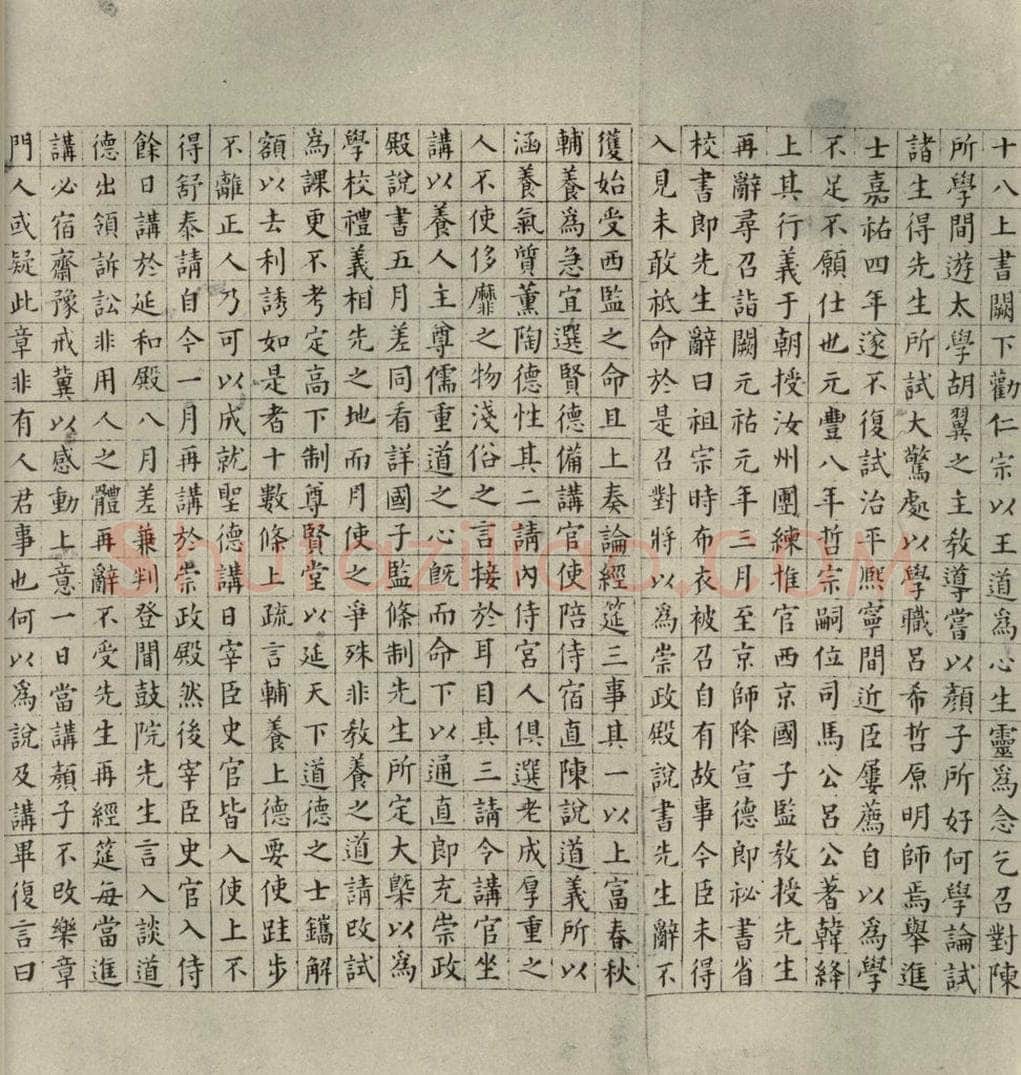 十八上書闕下勸仁宗以王道為心生靈為念乞召對陳
所學間遊太學胡翼之主敎導嘗以顏子所好何學論試
諸生得先生所試大驚處以學職呂希哲原明師焉舉進
士嘉祐四年遂不復試治平熈寧間近臣屢薦自以為學
不足不願仕也元豐八年哲宗嗣位司馬公呂公著韓絳
上其行義于朝授汝州團練推官西京國子監敎授先生
再辭尋召詣闕元祐元年三月至京師除宣德郎祕書省
校書郎先生辭曰祖宗時布衣被召自有故事今臣未得
入見未敢祗命於是召對將以為崇政殿說書先生辭不
獲始受西監之命且上奏論經筵三事其一以上富春秋
輔養為急宜選賢德備講官使陪侍宿直陳說道義所以
涵養氣質薰陶德性其二請內侍宮人俱選老成厚重之
人不使侈靡之物淺俗之言接於耳目其三請今講官坐
講以養人主尊儒重道之心旣而命下以通直郎充崇政
殿說書五月差同看詳國子監條制先生所定大槩以為
學校禮義相先之地而月使之爭殊非敎養之道請改試
為課更不考定高下制尊賢堂以延天下道德之士鐫解
額以去利誘如是者十數條上疏言輔養上德要使跬步
不離正人乃可以成就聖德講日宰臣史官皆入使上不
得舒泰請自今一月再講於崇政殿然後宰臣史官入侍
餘日講於延和殿八月差兼判登聞鼓院先生言入談道
德出領訴訟非用人之體再辭不受先生再經筵每當進
講必宿齋豫戒冀以感動上意一日當講顏子不改樂章
門人或疑此章非有人君事也何以為說及講畢復言曰
Shufaziliao.COM